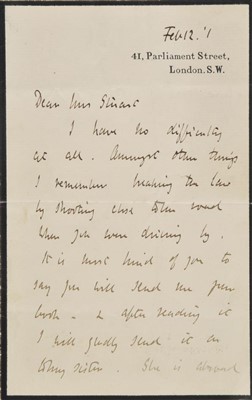 Feb 12. '1
41, Parliament Street,
London. S.W.
Dear Mrs Stuart
I have no difficulty
at all. Amongst other things
I remember breaking the law
by shooting close to the road
when you were driving by.
It is most kind of you to
say you will send me your
book - & after reading it
I will gladly send it on
to my sister. She is abroad